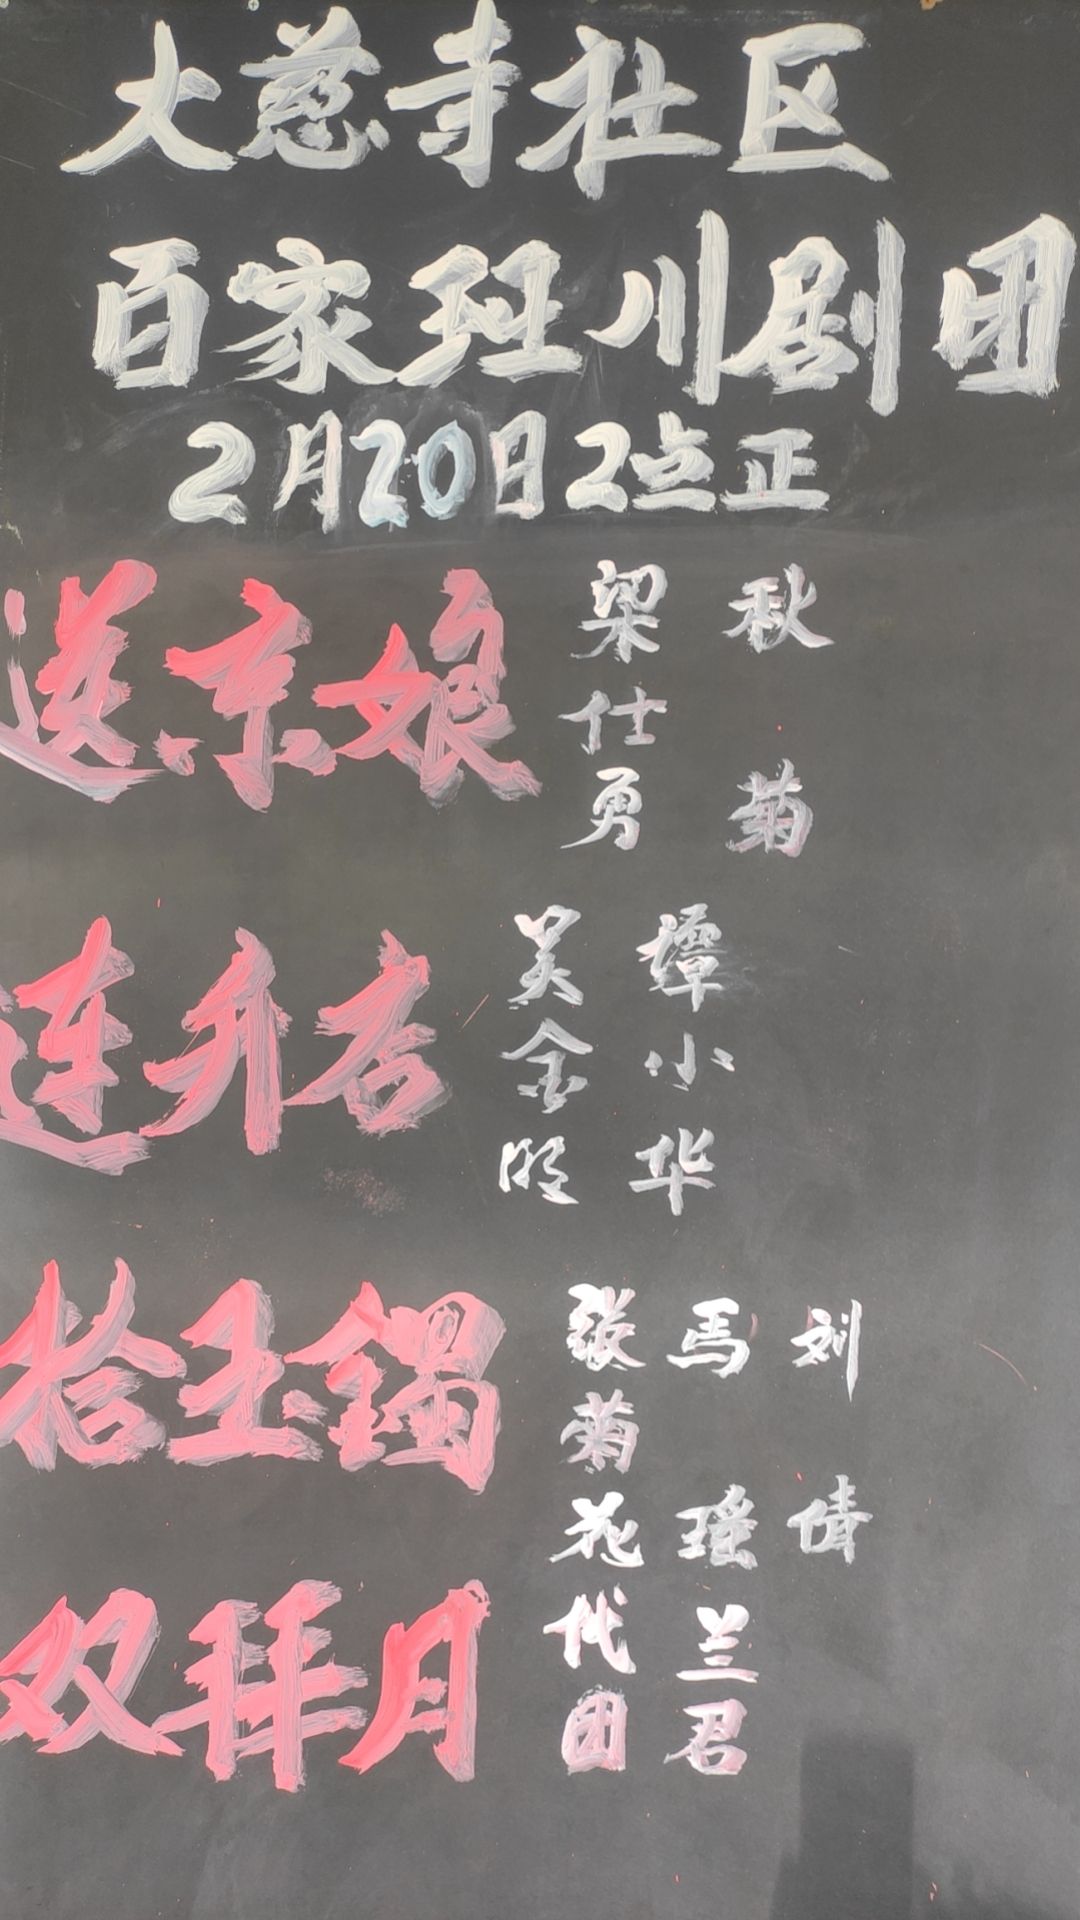 大慈寺社区
百家班川剧团
2月20日2点正
送京娘 梁仕勇 秋菊
连升店 吴金明 谭小华
拾玉镯 张菊花 马瑶 刘倩
双拜月 代团 兰君